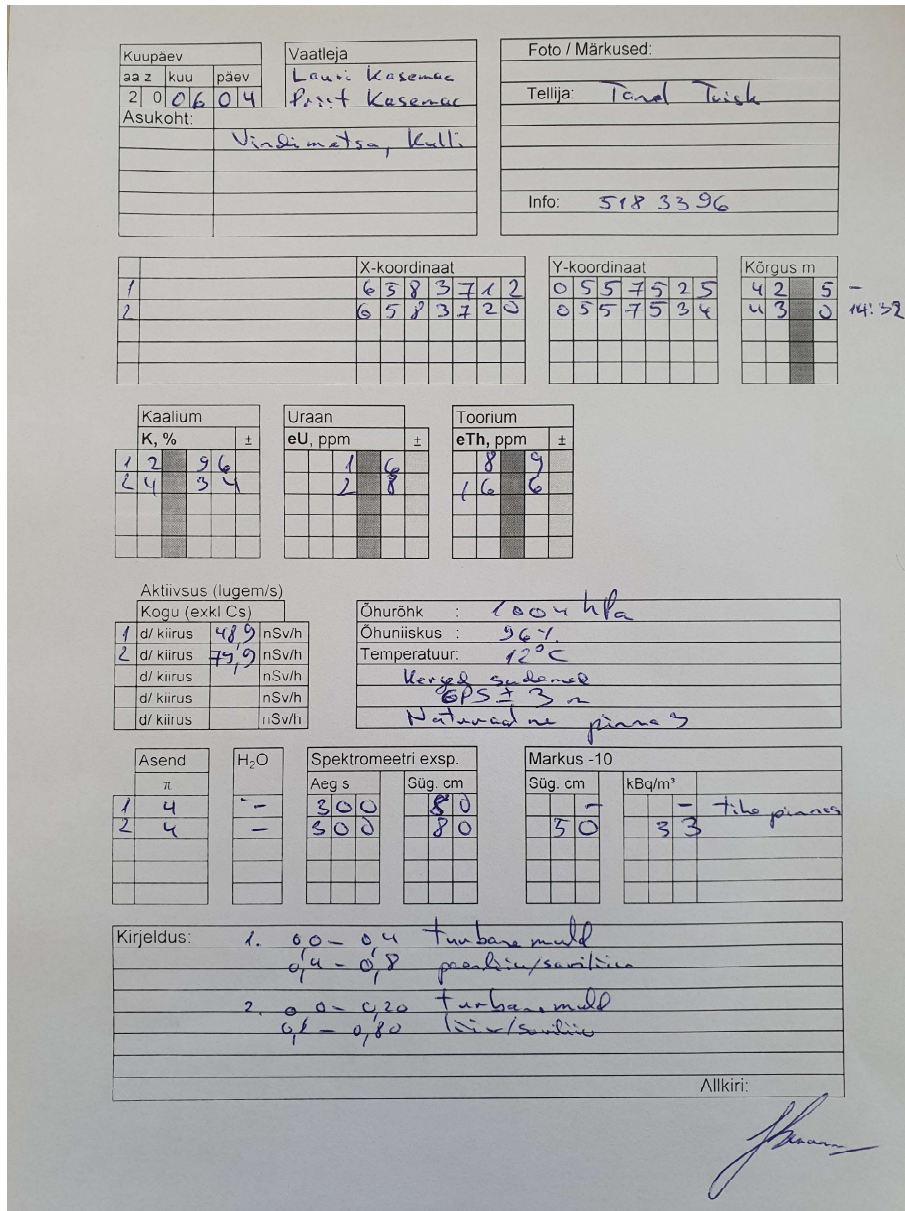 Kuupäev
aa z kuu päev
2 0 0 6 0 4
Vaatleja
Lauri Kasemaa
Priit Kasemaa
Asukoht:
Vindimatsa, Kulli
Foto / Märkused:
Tellija: Tanel Tuisk
Info: 518 33 96
X-koordinaat Y-koordinaat Kõrgus m
1 6 5 8 3 7 1 2 0 5 5 7 5 2 5 4 2 5 -
2 6 5 8 3 7 2 0 0 5 5 7 5 3 4 4 3 0 14:32
Kaalium Uraan Toorium
K, % ± eU, ppm ± eTh, ppm ±
1 2 9 6 1 6 8 9
2 4 3 4 2 8 1 6 6
Aktiivsus (lugem/s)
Kogu (exkl Cs)
1 d/ kiirus 48,9 nSv/h
2 d/ kiirus 79,9 nSv/h
d/ kiirus nSv/h
d/ kiirus nSv/h
d/ kiirus nSv/h
Õhurõhk : 1004 hPa
Õhuniiskus : 96%
Temperatuur: 12°C
Kerged sademed
GPS ± 3 m
pinnas
Asend H₂O Spektromeetri exsp. Markus -10
π Aeg s Süg. cm Süg. cm kBq/m³
1 4 - 300 80 - - tihe pinnas
2 4 - 300 80 50 33
Kirjeldus: 1. 0,0 - 0,4 turbane muld
0,4 - 0,8 peenliiv/saviliiv
2. 0,0 - 0,20 turbane muld
0,80 liiv/saviliiv
Allkiri: